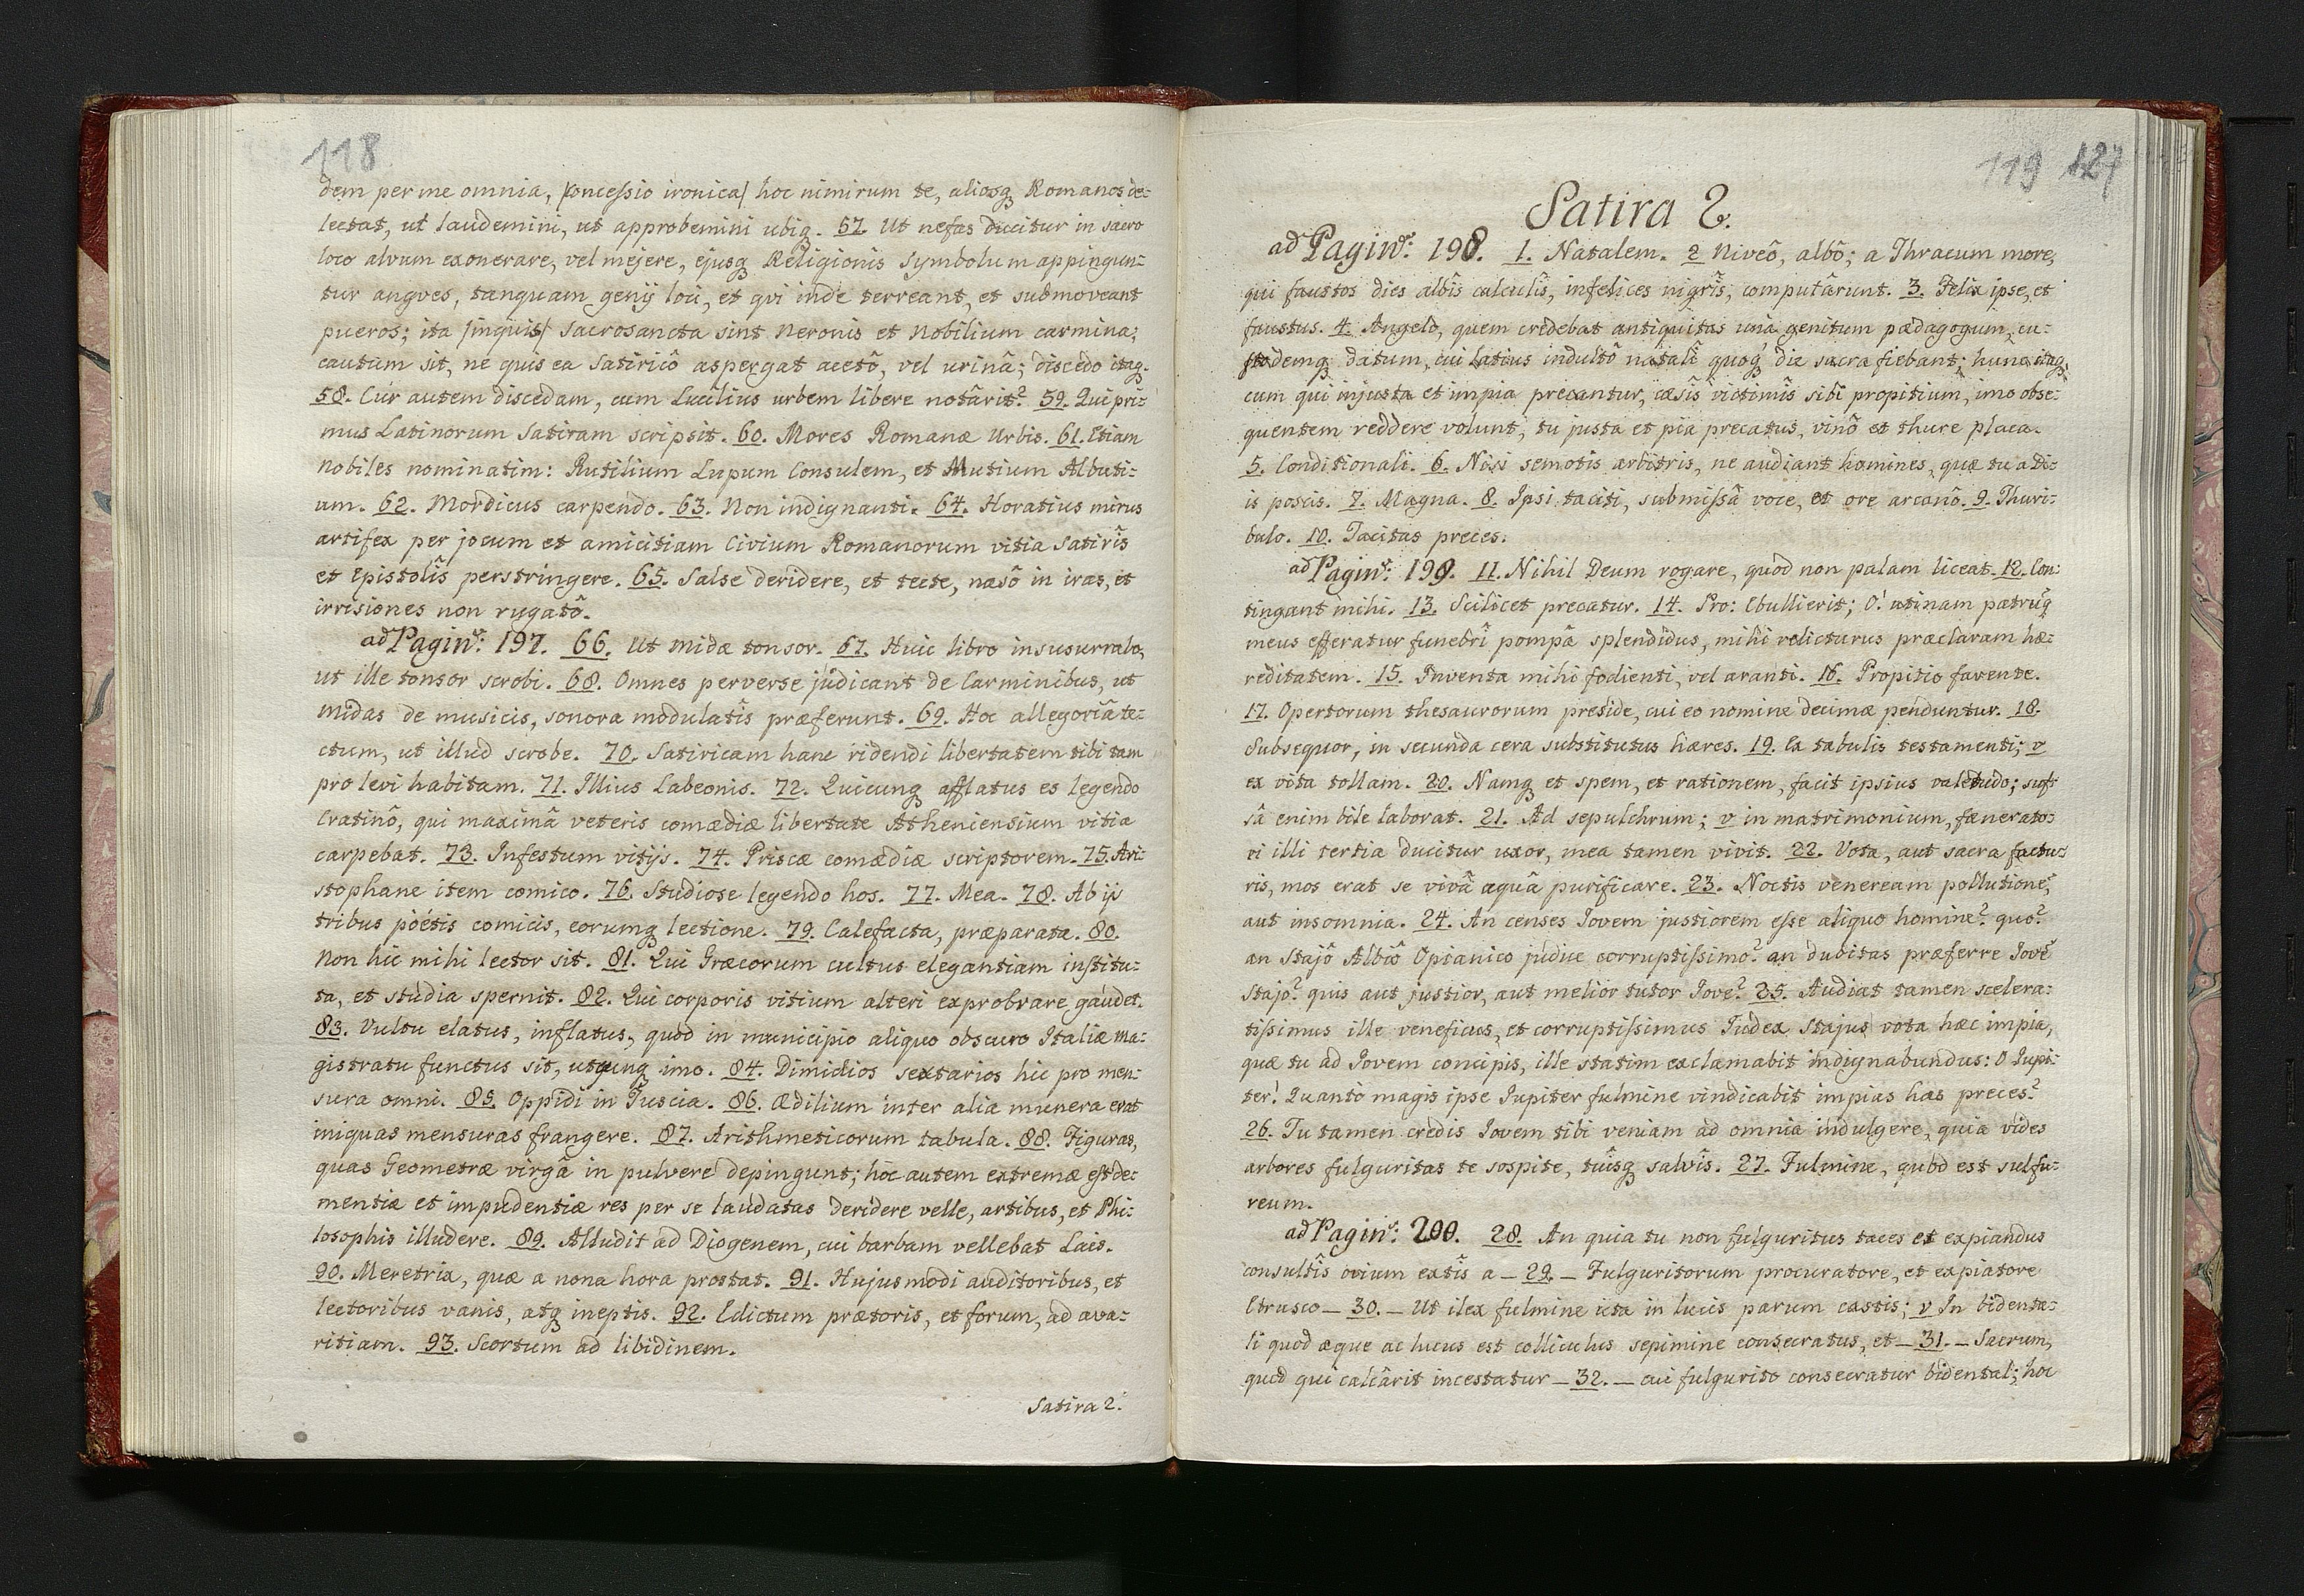 118
dem per me omnia, /concessio ironica/ hoc nimirum te, aliosq Romanos de-
lectat, ut laudemini, ut approbemini ubiq. 57. Ut nefas ducitur in sacro
loco alvum exonerare, vel mejere, ejusq Religionis symbolum appingun-
tur angves, tanquam genij loci, et qvi inde terreant, et submoveant
pueros; ita /inquis/ sacrosancta sint Neronis et Nobilium carmina;
cautum sit, ne quis ea satiricô aspergat acetô, vel urinâ; discedo itaq.
58. Cur autem discedam, cum Lucilius urbem libere notârit? 59. Qui pri-
mus Latinorum satiram scripsit. 60. Mores Romanæ Urbis. 61. Etiam
nobiles nominatim: Rutilium Lupum Consulem, et Mutium Albuti-
um. 62. Mordicus carpendo. 63. Non indignanti. 64. Horatius mirus
artifex per jocum et amicitiam Civium Romanorum vitia satirîs
et Epistolîs perstringere. 65. Salse deridere, et tecte, nasô in iras, et
irrisiones non rugatô.
ad Pagin: 197. 66. Ut Midæ tonsor. 67. Huic libro insusurrabo,
ut ille tonsor scrobi. 68. Omnes perverse judicant de Carminibus, ut
Midas de musicis, sonora modulatîs præferunt. 69. Hoc allegoriâ te-
ctum, ut illud scrobe. 70. Satiricam hanc ridendi libertatem tibi tam
pro levi habitam. 71. Illius Labeonis. 72. Quicunq afflatus es legendo
Cratinô, qui maximâ veteris comœdiæ libertate Atheniensium vitia
carpebat. 73. Infestum vitijs. 74. Priscæ comœdiæ scriptorem. 75. Ari-
stophane item comico. 76. Studiose legendo hos. 77. Mea. 78. Ab ijs
tribus poétis comicis, eorumq lectione. 79. Calefacta, præparata. 80.
Non hic mihi lector sit. 81. Qui Græcorum cultus elegantiam institu-
ta, et studia spernit. 82. Qui corporis vitium alteri exprobrare gaudet.
83. Vultu elatus, inflatus, quod in municipio aliquo obscuro Italiæ ma-
gistratu functus sit, utqunq imo. 84. Dimidios sextarios hic pro men-
sura omni. 85. Oppidi in Tuscia. 86. Ædilium inter alia munera erat
iniquas mensuras frangere. 87. Arithmeticorum tabula. 88. Figuras,
quas Geometræ virgâ in pulvere depingunt; hoc autem extremæ est de-
mentiæ et impudentiæ res per se laudatas deridere velle, artibus, et Phi-
losophis illudere. 89. Alludit ad Diogenem, cui barbam vellebat Lais.
90. Meretrix, quæ a nona hora prostat. 91. Hujusmodi auditoribus, et
lectoribus vanis, atq ineptis. 92. Edictum prætoris, et forum, ad ava-
ritiam. 93. Scortum ad libidinem.
Satira 2.
119 127
Satira 2.
ad Pagin: 198. 1. Natalem. 2 Niveô, albô; a Thracum more,
qui faustos dies albîs calculîs, infelices nigrîs, computârunt. 3. Felix ipse, et
faustus. 4. Angelo, quem credebat antiquitas unâ genitum pædagogum, cu-
stodemq datum, cui latius indultô natali quoq die sacra fiebant; hunc itaq,
cum qui injusta et impia precantur, cæsîs victimîs sibi propitium, imo obse-
quentem reddere volunt, tu justa et pia precatus, vinô et thure placa.
5. Conditionali. 6. Nisi semotis arbitris, ne audiant homines, quæ tu a Di-
is poscis. 7. Magna. 8. Ipsi taciti, submissâ voce, et ore arcanô. 9. Thuri-
bulo. 10. Tacitas preces.
ad Pagin: 199. 11. Nihil Deum rogare, quod non palam liceat. 12. Con-
tingant mihi. 13. Scilicet precatur. 14. Pro: Ebullierit; O! utinam patruq
meus efferatur funebrî pompâ splendidus, mihi relicturus præclaram hæ-
reditatem. 15. Inventa mihi fodienti, vel aranti. 16. Propitio favente.
17. Opertorum thesaurorum preside, cui eo nomine decimæ penduntur. 18.
Subsequor, in secunda cera substitutus hæres. 19. Ex tabulis testamenti; v
ex vita tollam. 20. Namq et spem, et rationem, facit ipsius valetudo; suf-
sâ enim bile laborat. 21. Ad sepulchrum; v in matrimonium, fænerato-
ri illi tertia ducitur uxor, mea tamen vivit. 22. Vota, aut sacra factu-
ris, mos erat se vivâ aquâ purificare. 23. Noctis veneream pollutionē,
aut insomnia. 24. An censes Jovem justiorem esse aliquo homine? quo?
an Stajô Albiô Opianico judice corruptissimo? an dubitas præferre Jovē
Stajo? quis aut justior, aut melior tutor Jove? 25. Audiat tamen scelera-
tissimus ille veneficus, et corruptissimus Judex Stajus vota hæc impia,
quæ tu ad Jovem concipis, ille statim exclamabit indignabundus: O Jupi-
ter! Quantò magis ipse Jupiter fulmine vindicabit impias has preces?
26. Tu tamen credis Jovem tibi veniam ad omnia indulgere, quia vides
arbores fulguritas te sospite, tuîsq salvîs. 27. Fulmine, quod est sulfu-
reum.
ad Pagin: 200. 28. An quia tu non fulguritus taces et expiandus
consultîs ovium extîs a – 29. – Fulguritorum procuratore, et expiatore
Etrusco – 30. – Ut ilex fulmine icta in lucis parum castis; v In bidenta-
li quod æque ac lucus est colliculus sepimine consecratus, et – 31. – Sacrum,
quod qui calcârit incestatur – 32. – cui fulgurito consecratur bidental; hoc